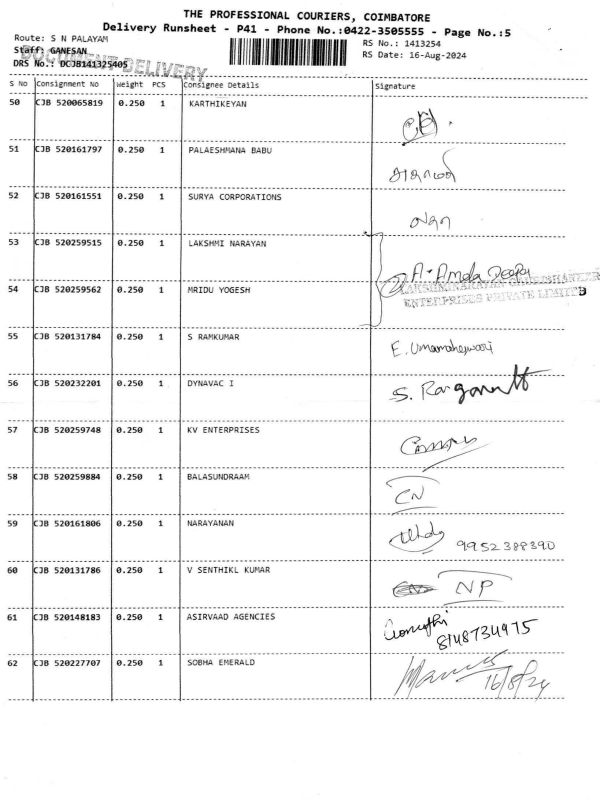 THE PROFESSIONAL COURIERS, COIMBATORE
Delivery Runsheet - P41 - Phone No.:0422-3505555 - Page No.:5
Route: S N PALAYAM
RS No.: 1413254
Staff: GANESAN
RS Date: 16-Aug-2024
DOCUMENT DELIVERY
DRS No.: DCJB141325405
S No Consignment No Weight PCS Consignee Details Signature
50 CJB 520065819 0.250 1 KARTHIKEYAN
51 CJB 520161797 0.250 1 PALAESHMANA BABU
52 CJB 520161551 0.250 1 SURYA CORPORATIONS
53 CJB 520259515 0.250 1 LAKSHMI NARAYAN
A. Amala Deepa
54 CJB 520259562 0.250 1 MRIDU YOGESH
ENTERPRISES PRIVATE LIMITED
55 CJB 520131784 0.250 1 S RAMKUMAR
E. Umamaheswari
56 CJB 520232201 0.250 1 DYNAVAC I
S.
57 CJB 520259748 0.250 1 KV ENTERPRISES
58 CJB 520259884 0.250 1 BALASUNDRAAM
CN
59 CJB 520161806 0.250 1 NARAYANAN
9952388390
60 CJB 520131786 0.250 1 V SENTHIKL KUMAR
NP
61 CJB 520148183 0.250 1 ASIRVAAD AGENCIES
8148734975
62 CJB 520227707 0.250 1 SOBHA EMERALD
16/8/24